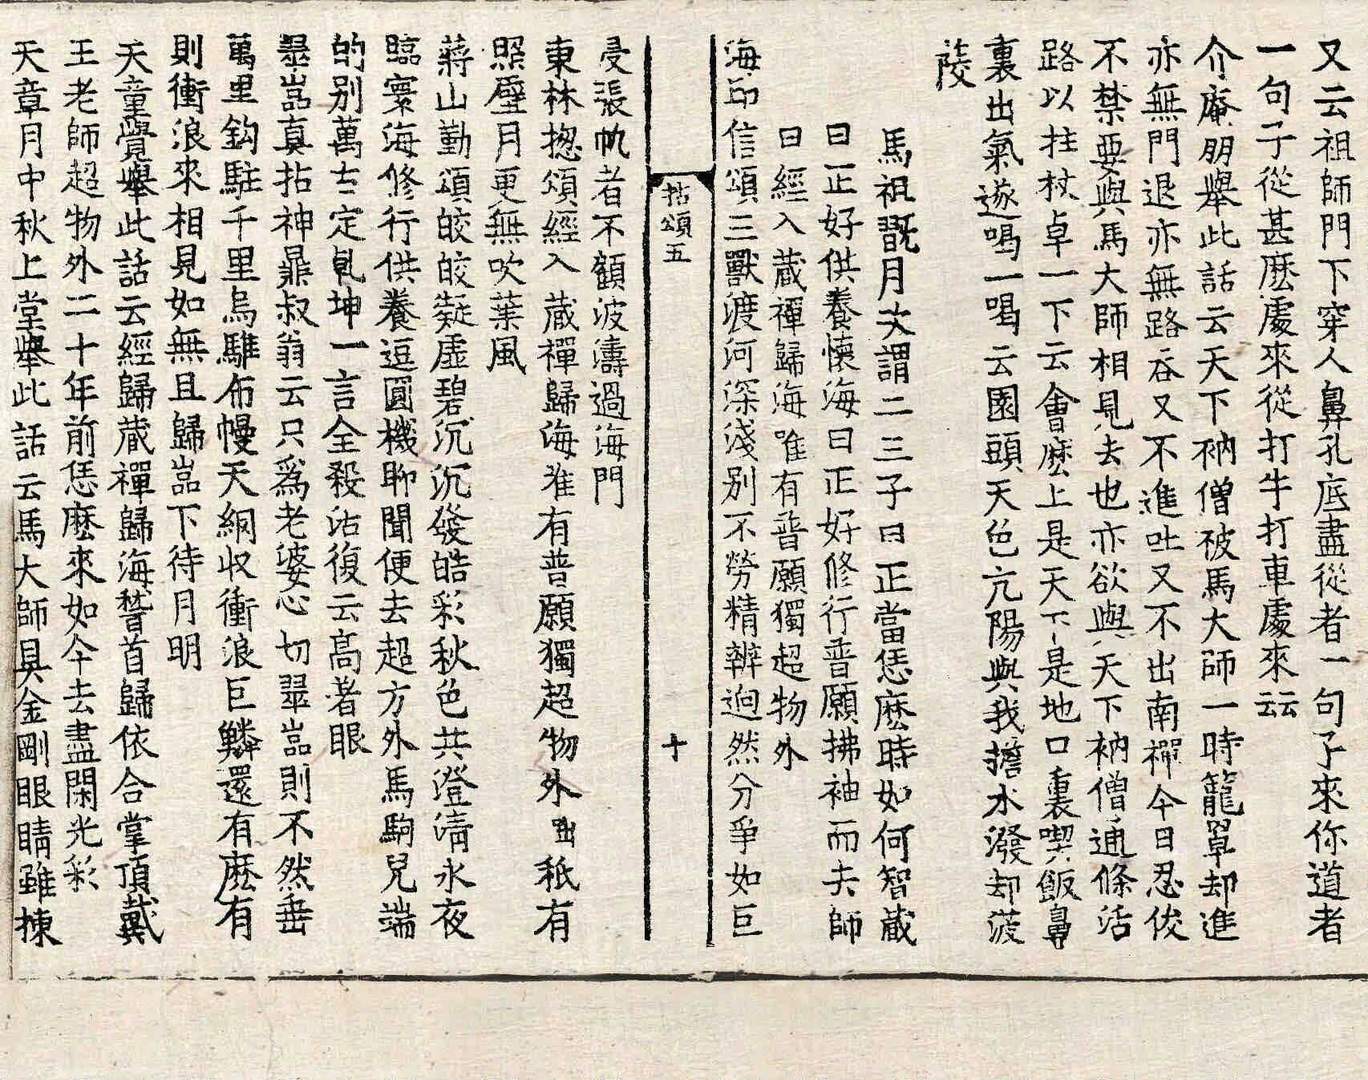 又云祖師門下穿人鼻孔底盡從者一句子來你道者
一句子從甚麽處來從打牛打車處來云云
介庵朋舉此話云天下衲僧被馬大師一時籠罩却進
亦無門退亦無路吞又不進吐又不出南禪今日忍俊
不禁要與馬大師相見去也亦欲與天下衲僧通條活
路以拄杖卓一下云會麽上是天下是地口裏喫飯鼻
裏出氣遂喝一喝云園頭天色亢陽與我擔水潑却菠
䔖
馬祖翫月次謂二三子曰正當恁麽時如何智蔵
曰正好供養懷海曰正好修行普願拂袖而去師
曰經入蔵禪歸海唯有普願獨超物外
海印信頌三獸渡河深淺别不勞精辨迥然分爭如巨
拈頌五
十
浸張帆者不顧波濤過海門
東林揔頌經入蔵禪歸海唯有普願獨超物外出秖有
照壁月更無吹葉風
蔣山勤頌皎皎凝虛碧沉沉發皓彩秋色共澄清永夜
臨寰海修行供養逗圓機聊聞便去超方外馬駒兒端
的别萬古定乹坤一言全殺活復云高著眼
翠嵓真拈神鼎叔翁云只爲老婆心切翠嵓則不然垂
萬里鈎駐千里烏騅布幔天網収衝浪巨鱗還有麽有
則衝浪來相見如無且歸嵓下待月明
天童覺舉此話云經歸蔵禪歸海䭫首歸依合掌頂戴
王老師超物外二十年前恁麽來如今去盡閑光彩
天章月中秋上堂舉此話云馬大師具金剛眼睛雖揀